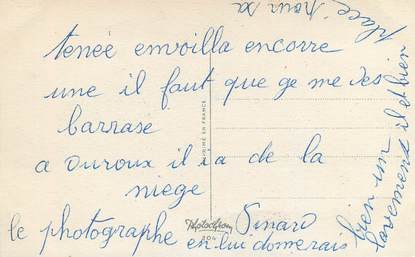 teneé envoilla encorre
une il faut que ge me des
barrase
a Ouroux il i a de la
niege
le photographe Sinard
en lui donnerais
bien un
lavement il et bien
place pour sa
IMPRIMÉ EN FRANCE
Photochrom
204